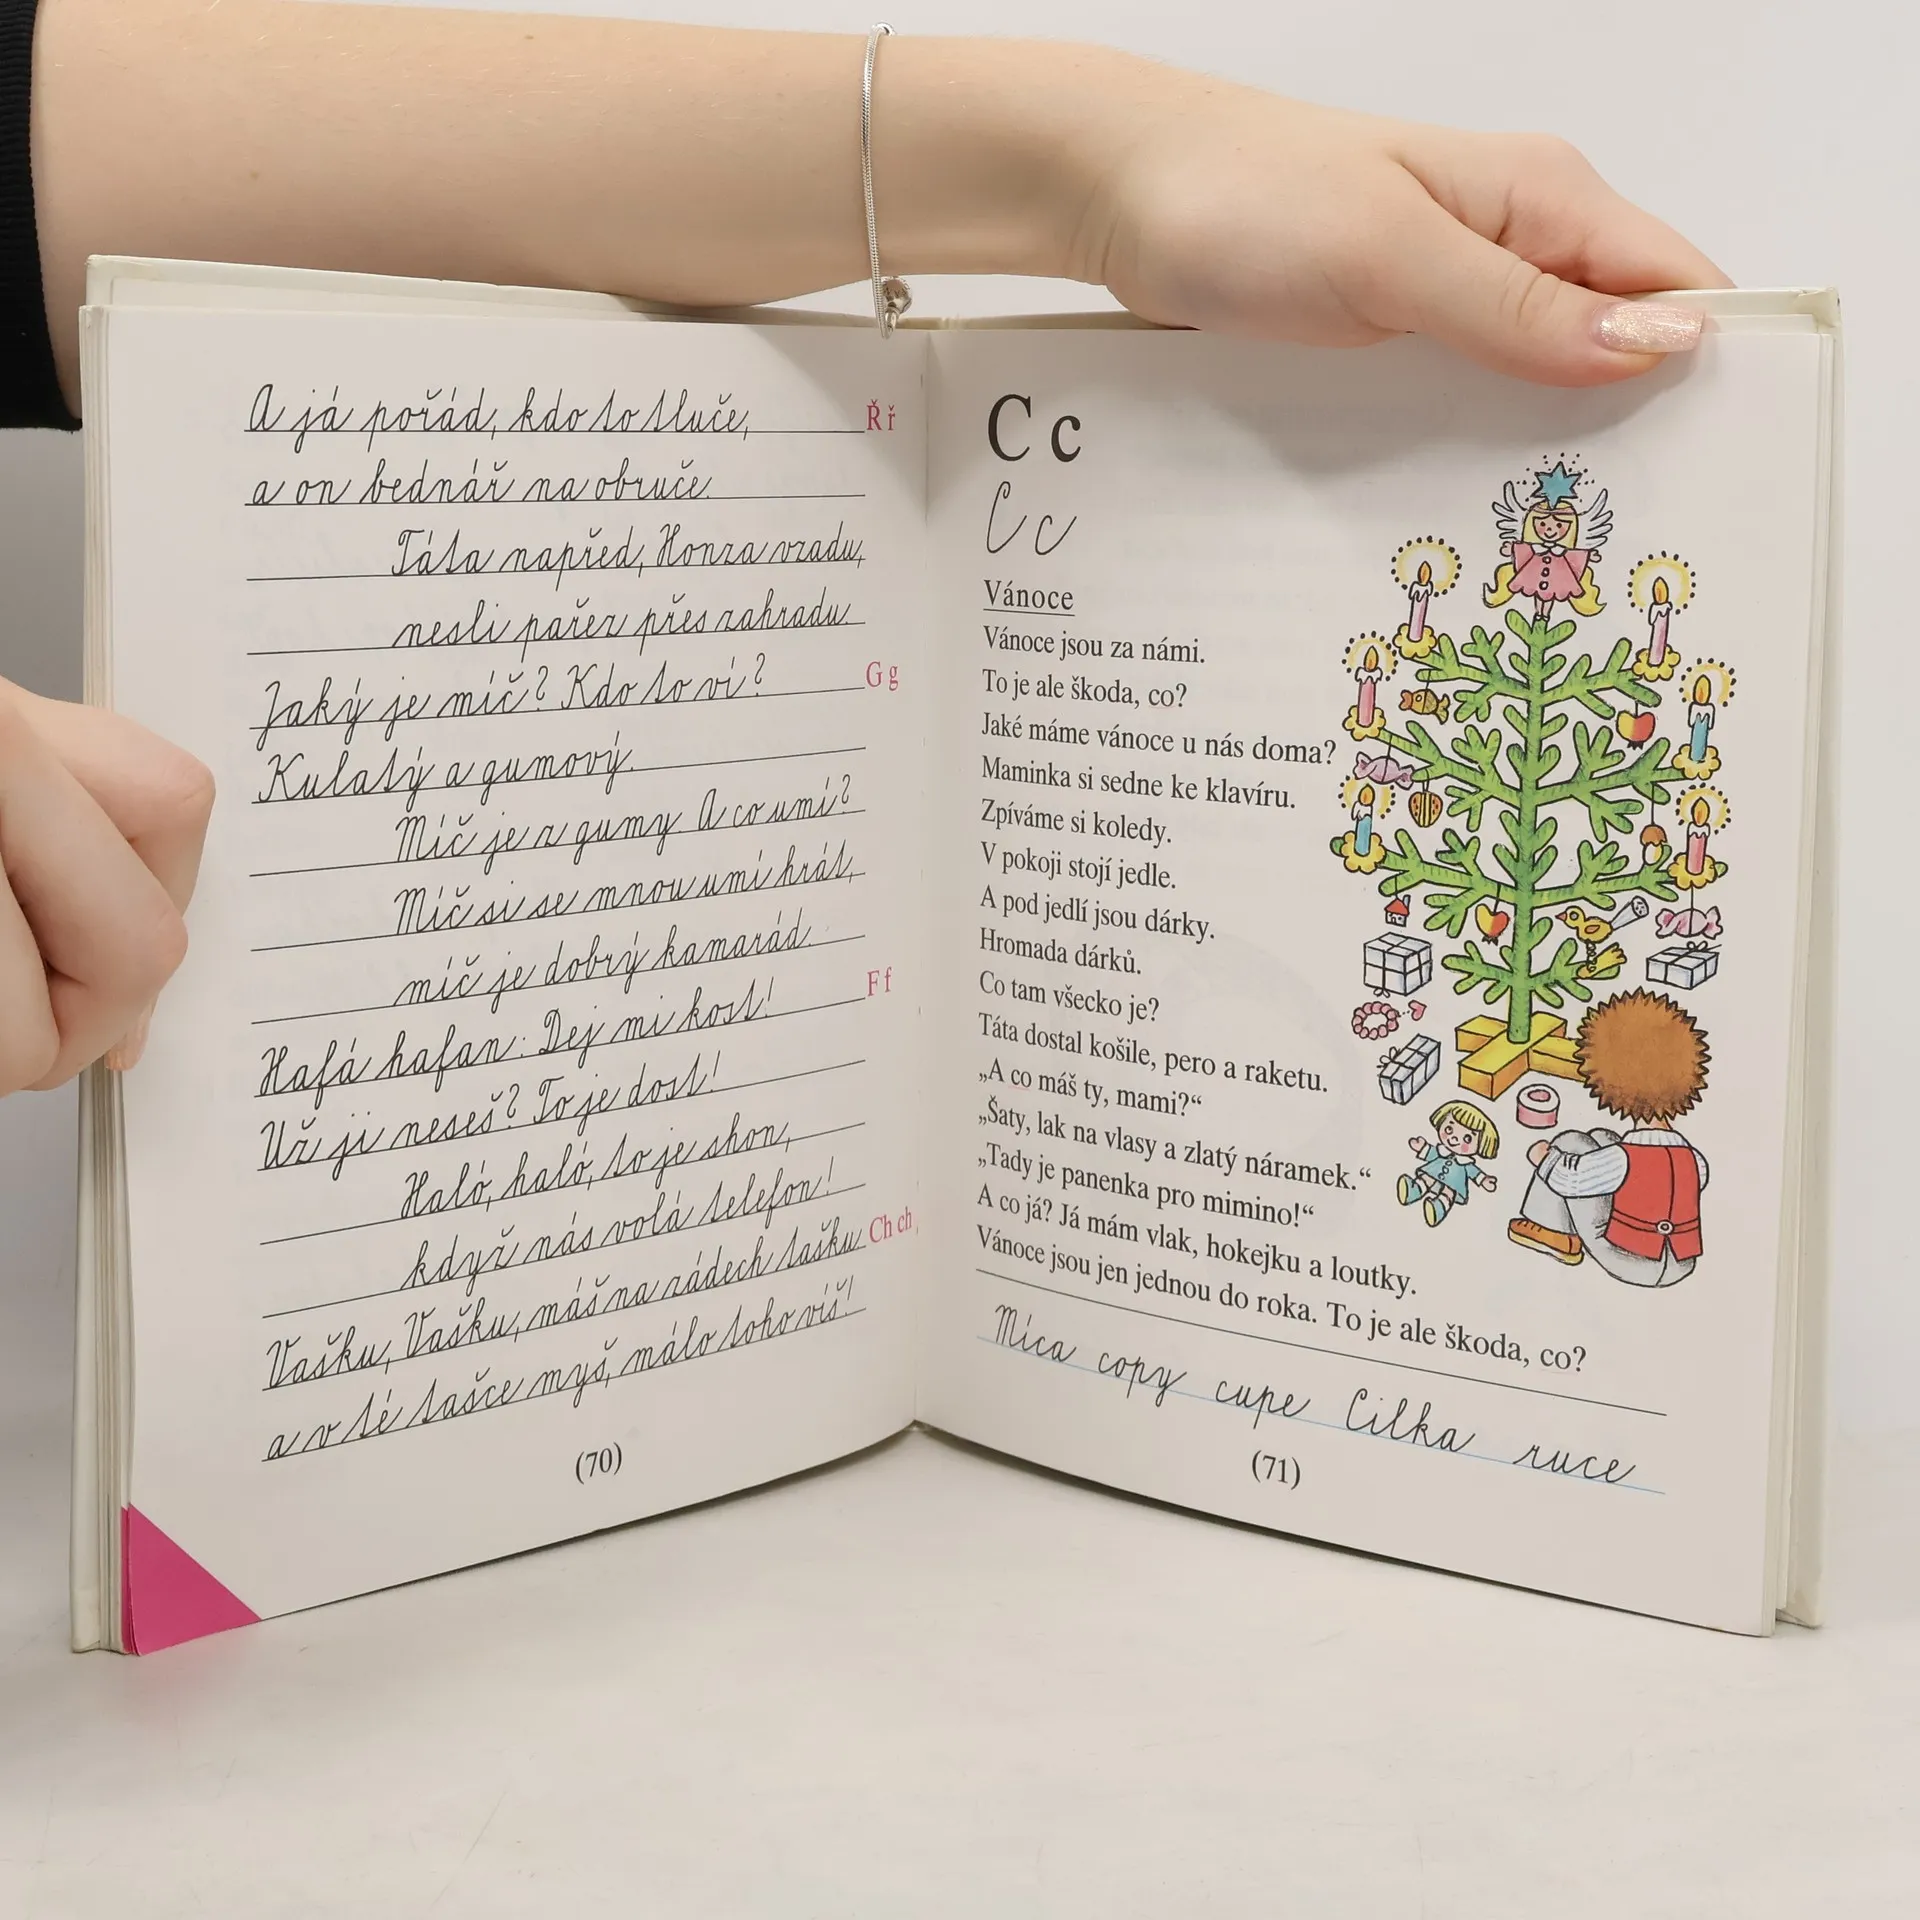 A já pořád, kdo to tluče,
Ř ř
a on bednář na obruče.
Táta napřed, Honza vzadu,
nesli pařez přes zahradu.
Jaký je míč? Kdo to ví?
G g
Kulatý a gumový.
Míč je z gumy. A co umí?
Míč si se mnou umí hrát,
míč je dobrý kamarád.
F f
Hafá hafan: Dej mi kost!
Už ji neseš? To je dost!
Haló, haló, to je shon,
když nás volá telefon!
Vašku, Vašku, máš na zádech tašku
Ch ch
a v té tašce myš, málo toho víš!
(70)
C c
C c
Vánoce
Vánoce jsou za námi.
To je ale škoda, co?
Jaké máme vánoce u nás doma?
Maminka si sedne ke klavíru.
Zpíváme si koledy.
V pokoji stojí jedle.
A pod jedlí jsou dárky.
Hromada dárků.
Co tam všecko je?
Táta dostal košile, pero a raketu.
„A co máš ty, mami?“
„Šaty, lak na vlasy a zlatý náramek.“
„Tady je panenka pro mimino!“
A co já? Já mám vlak, hokejku a loutky.
Vánoce jsou jen jednou do roka. To je ale škoda, co?
Míca copy cupe Cilka ruce
(71)